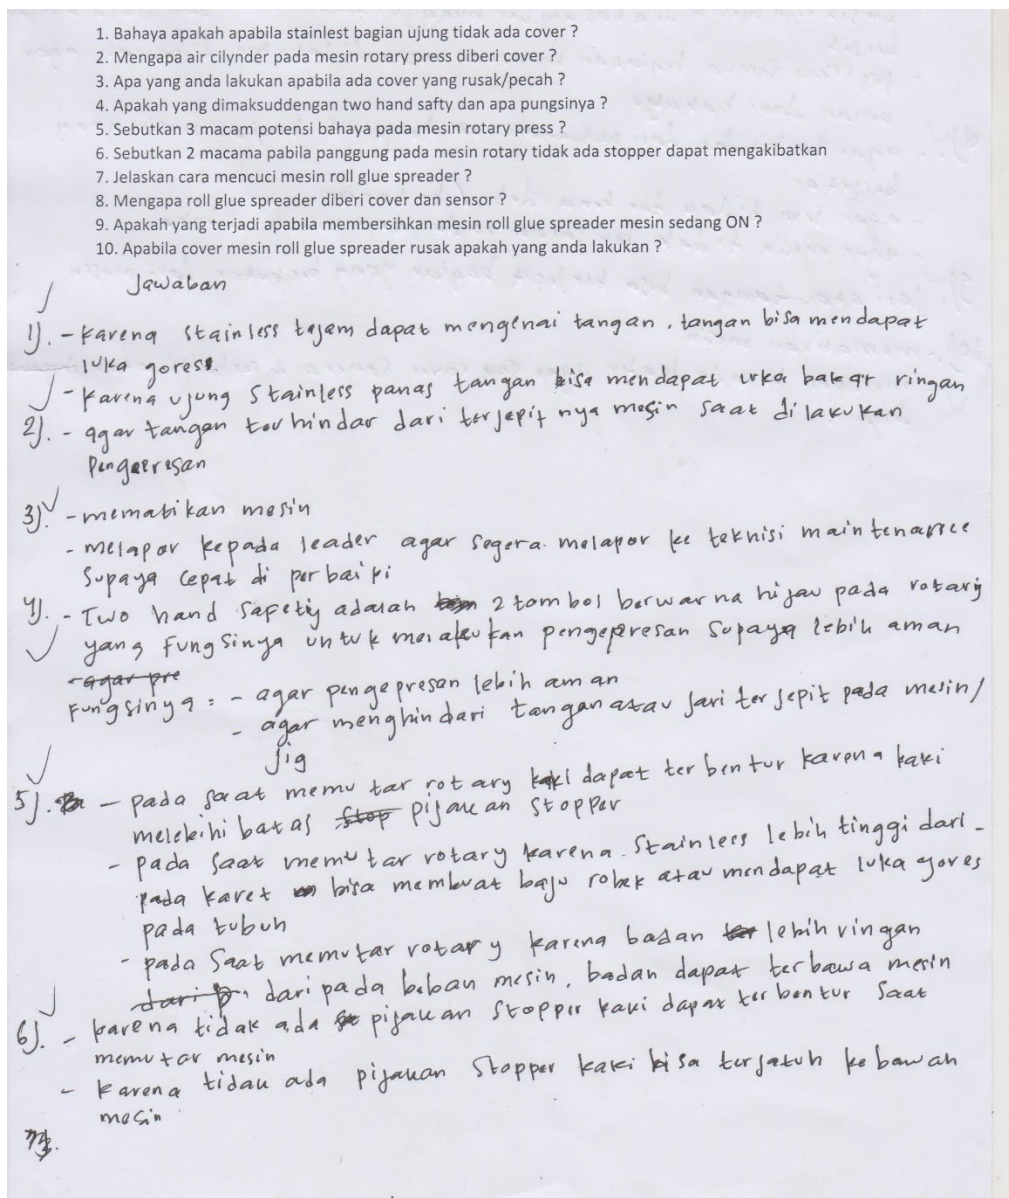 1. Bahaya apakah apabila stainlest bagian ujung tidak ada cover ?
2. Mengapa air cilynder pada mesin rotary press diberi cover ?
3. Apa yang anda lakukan apabila ada cover yang rusak/pecah ?
4. Apakah yang dimaksuddengan two hand safty dan apa pungsinya ?
5. Sebutkan 3 macam potensi bahaya pada mesin rotary press ?
6. Sebutkan 2 macama pabila panggung pada mesin rotary tidak ada stopper dapat mengakibatkan
7. Jelaskan cara mencuci mesin roll glue spreader ?
8. Mengapa roll glue spreader diberi cover dan sensor ?
9. Apakah yang terjadi apabila membersihkan mesin roll glue spreader mesin sedang ON ?
10. Apabila cover mesin roll glue spreader rusak apakah yang anda lakukan ?
Jawaban
1). - Karena stainless tajam dapat mengenai tangan, tangan bisa mendapat
luka gores.
- Karena ujung stainless panas tangan bisa mendapat luka bakar ringan
2). - agar tangan terhindar dari terjepit nya mesin saat di lakukan
pengepresan
3). - mematikan mesin
- melapor kepada leader agar segera melapor ke teknisi maintenance
Supaya cepat di perbaiki
4). - Two hand Safety adalah 2 tombol berwarna hijau pada rotary
yang Fungsinya untuk melakukan pengepresan supaya lebih aman
- agar pre
Fungsinya = - agar pengepresan lebih aman
- agar menghindari tangan atau jari terjepit pada mesin /
jig
5). - pada saat memutar rotary kaki dapat terbentur karena kaki
melebihi batas stop pijakan stopper
- pada saat memutar rotary karena stainless lebih tinggi dari -
pada karet bisa membuat baju robek atau mendapat luka gores
pada tubuh
- pada saat memutar rotary karena badan lebih ringan
dari daripada beban mesin, badan dapat terbawa mesin
6). - karena tidak ada pijakan stopper kaki dapat terbentur saat
memutar mesin
- karena tidak ada pijakan stopper kaki bisa terjatuh ke bawah
mesin